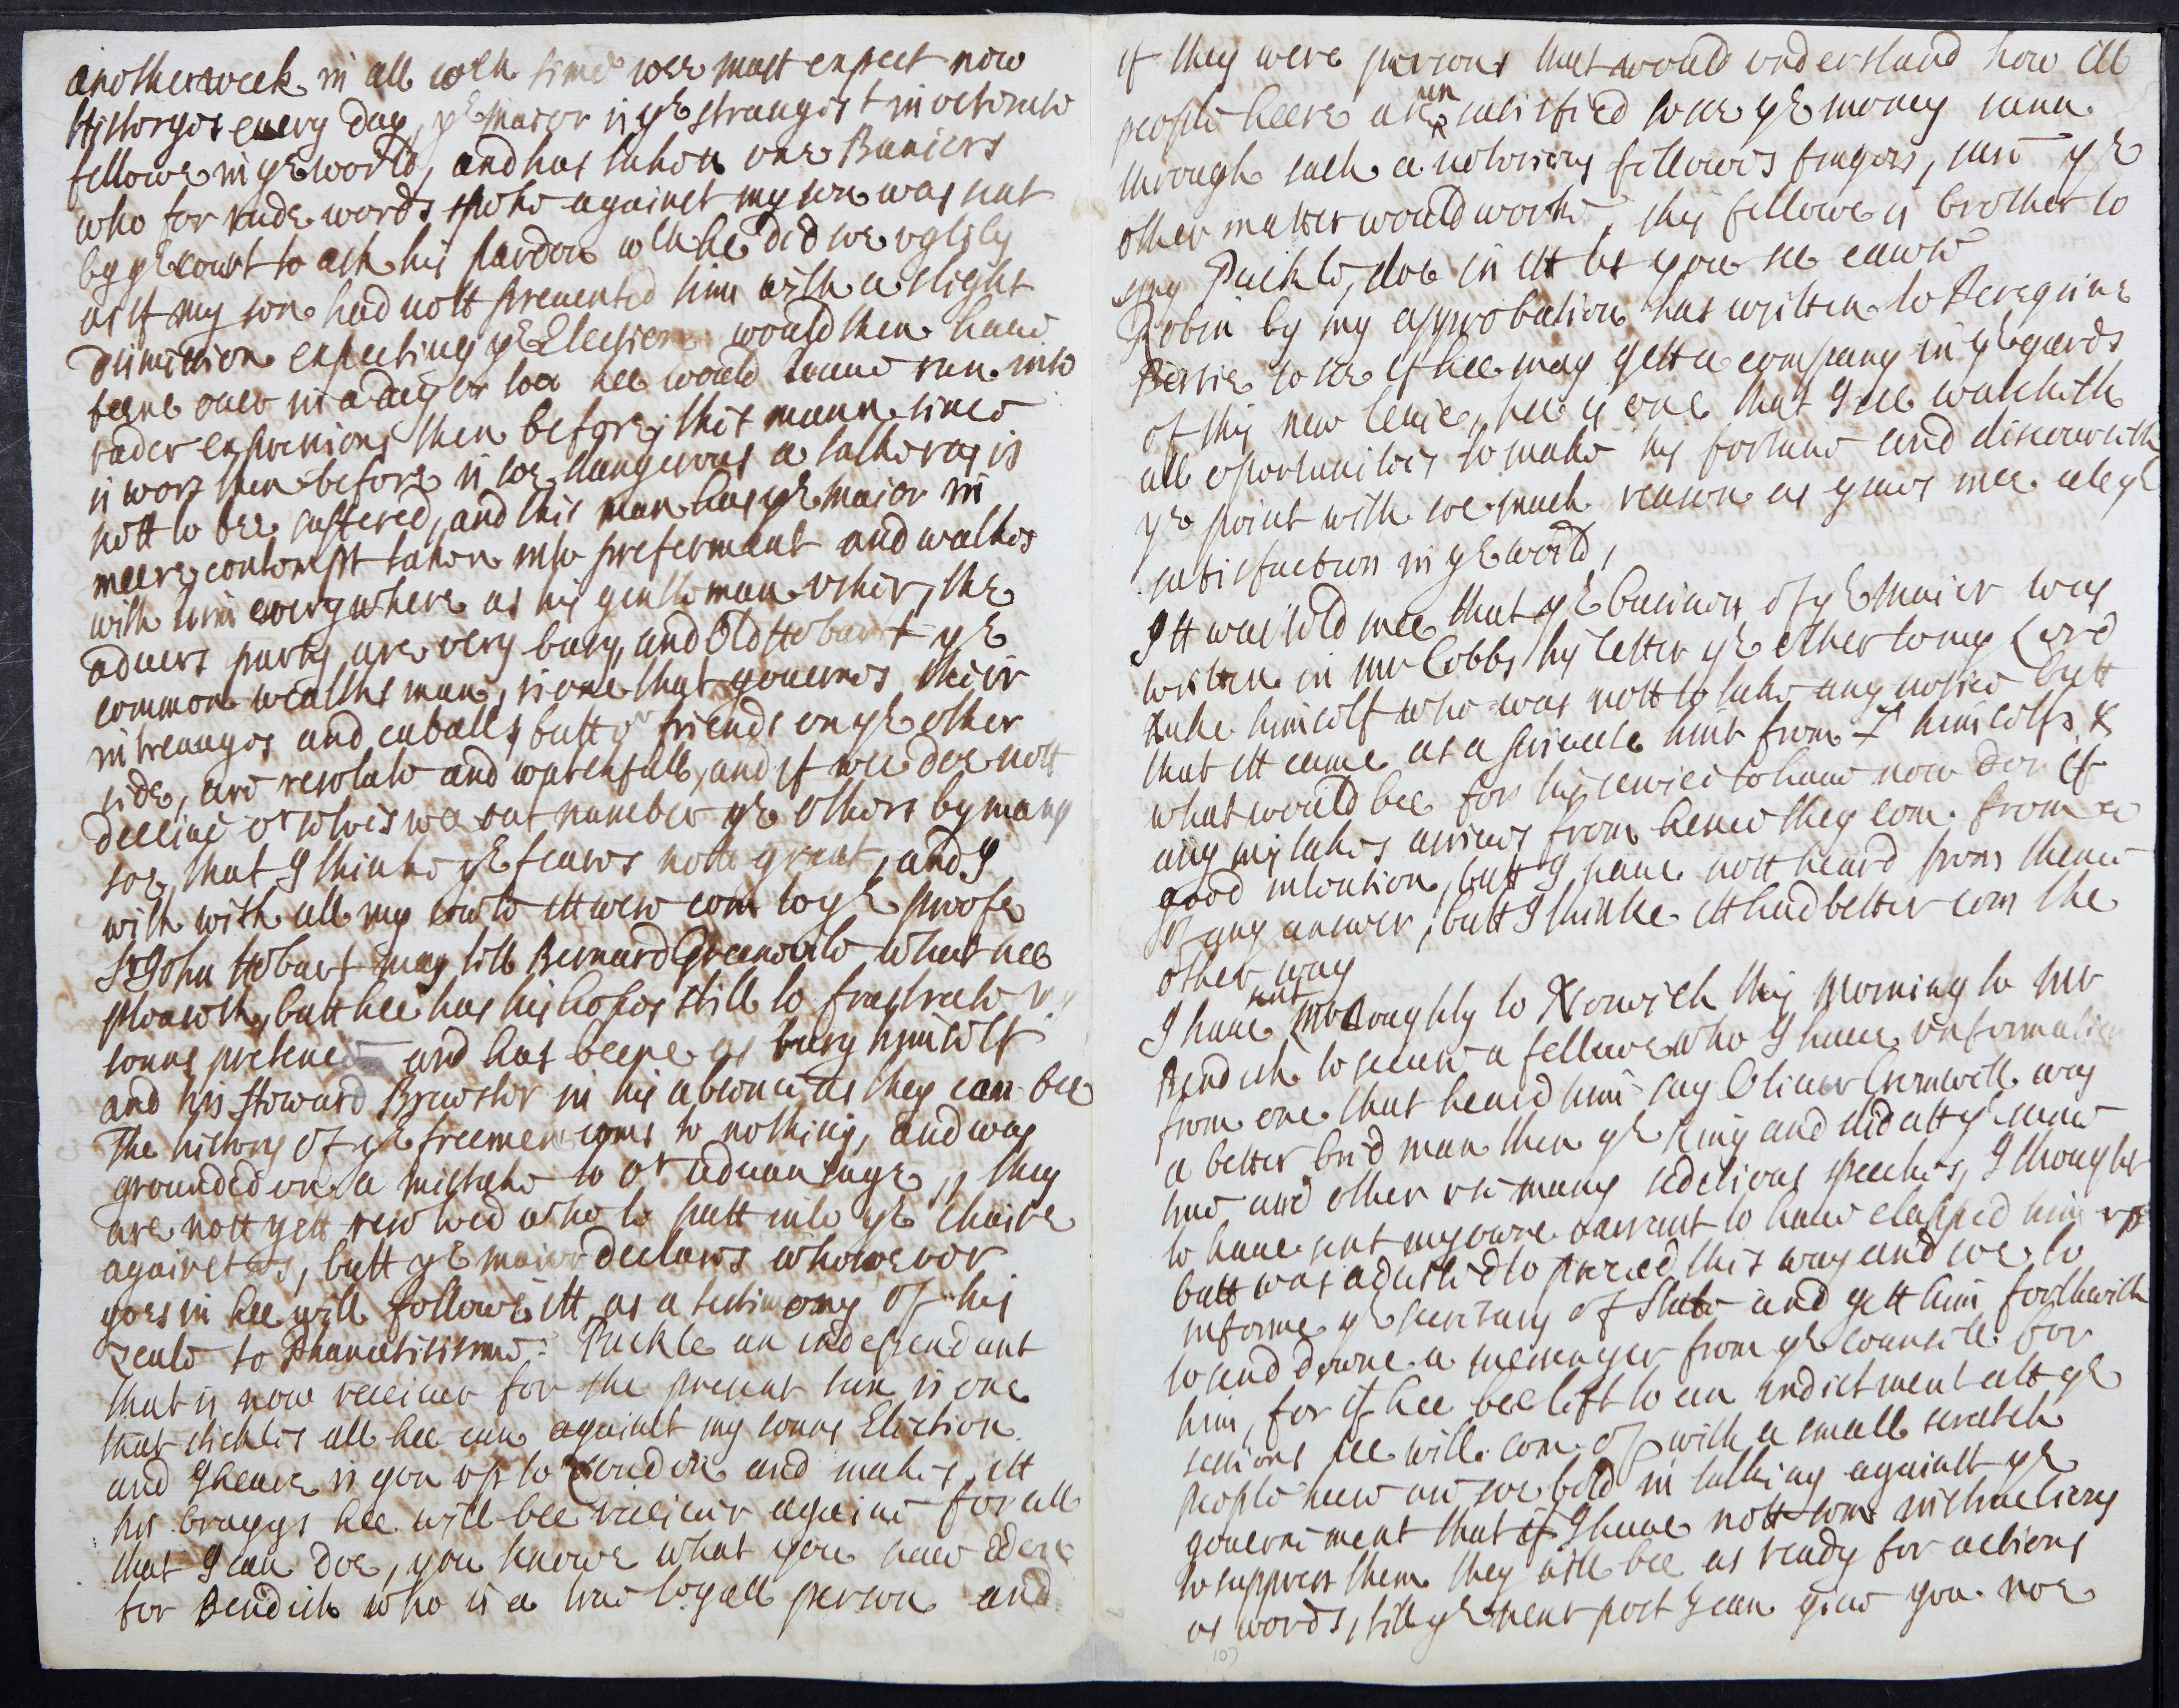 another week in all wch time wee must expect new
Historyes every day, ye maior is ye strangest inveterate
fellowe in ye world, and has taken one Baniers
who for rude words spoke against my son was put
by ye court to ask his pardon wch he did soe uglily
as if my son had nott prevented him with a slight
dismission expecting ye Election would then have
beene once in a day or toa hee would have run into
ruder expressions then before, this mann since
is wors then before is soe dangerous a talker as is
nott to bee suffered, and this man has ye maior in
meere contempt taken into preferment and walkes
with him everywhere as his gentleman usher, the
advers party are very busy, and Old Hobart ye
common wealths man, is one that governes their
intreauges and caballs, butt or friends on ye other
side, are resolute and watchfull, and if wee doe nott
deceive orselves wee out number ye others by many
soe, that I thinke ye feares nott great, and I
wish with all my soule itt were com to ye proofe
Sr John Hobart may tell Bernard Greenville what hee
pleaseth, butt hee has his hopes still to frustrate my
sonns pretences and has beene as busy himself
and his Steward Brewster in his absence as they can bee
The history of ye freemen coms to nothing, and was
grounded on a mistake to or advantage, they
are nott yett resolved who to putt into ye chaire
against us, butt ye maior declares whosoever
goes in hee will followe itt as a testimony of his
zeale to Phanatisisme: Puckle an independant
that is now receiver for the present tax is one
that stickles all hee can against my sonns Election
and I heare is gon up to London and makes itt
his braggs hee will bee receiver againe for all
that I can doe, you knowe what you have done
for Bendish who is a true loyall person and
if they were persons that would understand how ill
people heere are un satisfied to see ye money runn
through such a notorious fellowes fingers, sure ye
other matter would worke, this fellowe is brother to
my Puckle, doe in itt as you see cause
Robin by my approbation has written to Peregrine
Bertie to see if hee may gett a company in ye gards
of this new levie, hee is one that I see watcheth
all oportunities to make his fortune and discourseth
ye point with soe much reason as gives mee all ye
satisfaction in ye world,
Itt was told mee that ye business of ye maior was
written in Mr Cobbs his letter ye other to my Lord
Duke himself who was nott to take any notice butt
that itt came as a private hint from himself, &
what would bee for his service to have now don if
any mistakes arrives from hence they com from a
good intention, butt I have nott heard from thence
of any answer, butt I thinke itt had better com the
other way
I have sent Mr Doughty to Norwich this morning to Mr
Bendish to secure a fellowe who I have information
from one that heard him say Oliver Cromwell was
a better bred man then ye King and did att ye same
time use other very many seditious speeches, I thought
to have sent my owne warrant to have clapped him up
butt was advised to proceed this way and soe to
informe ye Secretary of State and gett him forthwith
to send downe a messenger from ye councill for
him, for if hee bee left to an indictment att ye
sessions hee will com of with a small scratch
people heere are soe bold in talking against ye
government that if I have nott som instructions
to suppress them they will bee as ready for actions
as words, till ye next post I can give you noe
107